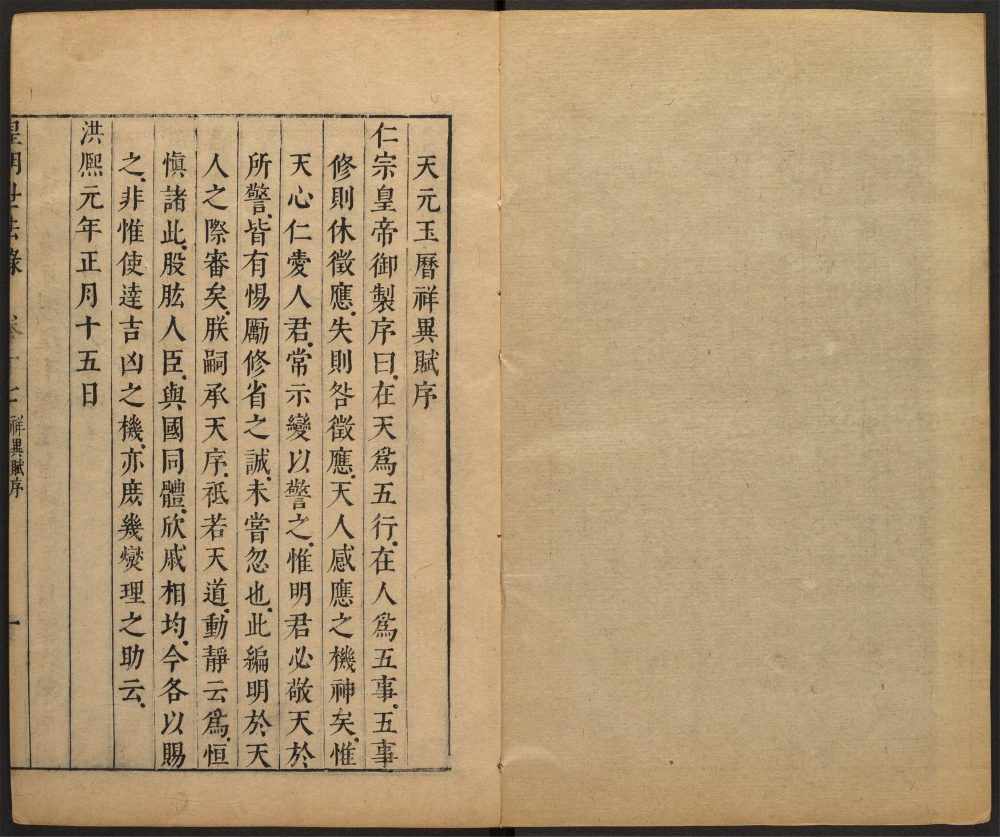 天元玉曆祥異賦序
仁宗皇帝御製序曰在天爲五行在人爲五事五事
修則休徵應失則咎徵應天人感應之機神矣惟
天心仁愛人君常示變以警之惟明君必敬天於
所警皆有惕勵修省之誠未嘗忽也此編明於天
人之際審矣朕嗣承天序祗若天道動靜云爲恒
愼諸此股肱人臣與國同體欣戚相均今各以賜
之非惟使達吉凶之機亦庶幾爕理之助云
洪熙元年正月十五日
皇明世法錄 卷十七 祥異賦序 一